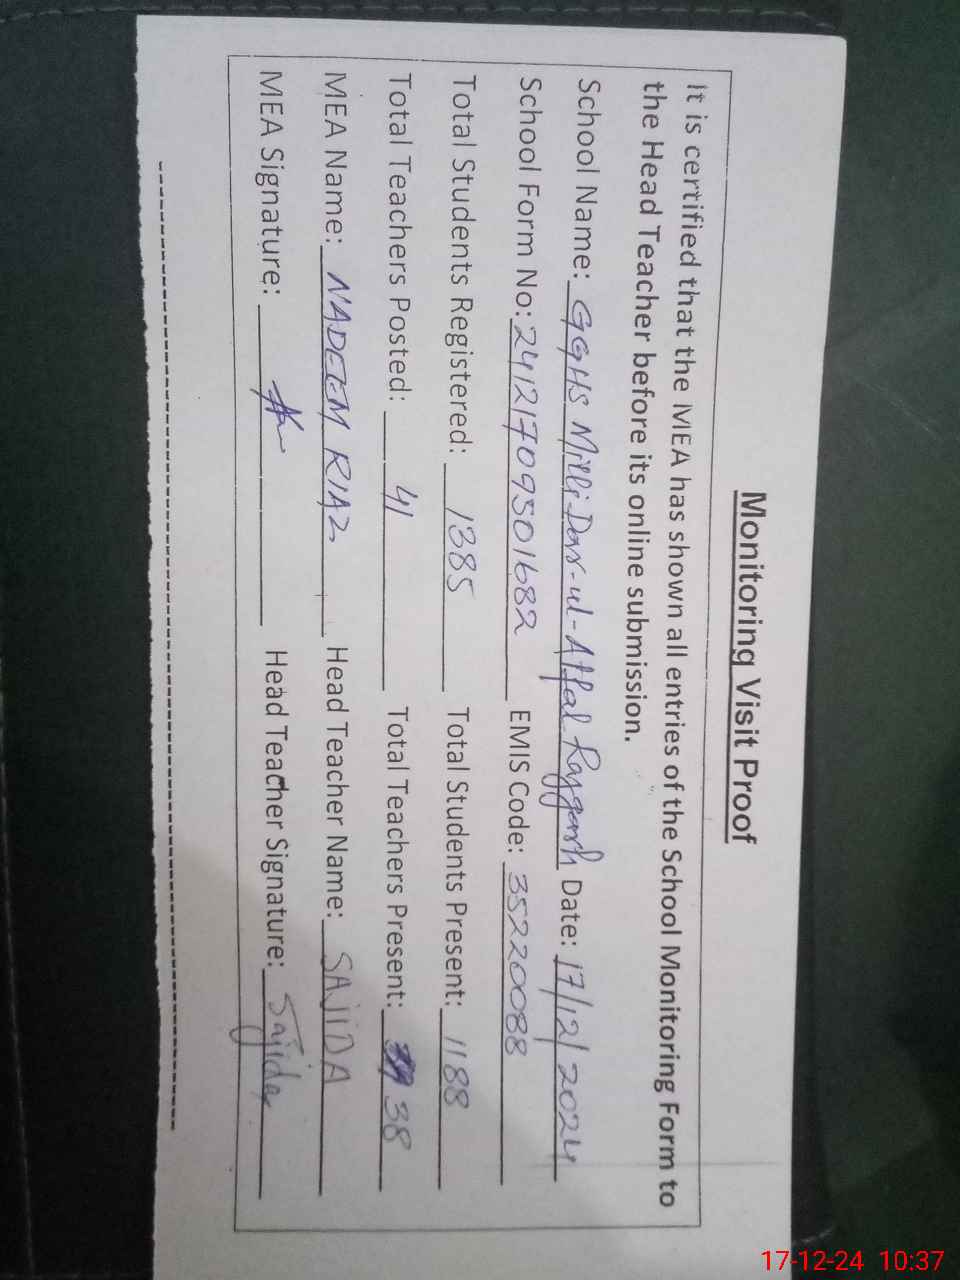 Monitoring Visit Proof
It is certified that the MEA has shown all entries of the School Monitoring Form to
the Head Teacher before its online submission.
School Name: GGHS Milli Dar-ul-Atfal Rajgarh Date: 17/12/2024
School Form No: 24121709501682 EMIS Code: 35220088
Total Students Registered: 1385 Total Students Present: 1188
Total Teachers Posted: 41 Total Teachers Present: 38
MEA Name: NADEEM RIAZ Head Teacher Name: SAJIDA
MEA Signature: Head Teacher Signature: Sajida
17-12-24 10:37